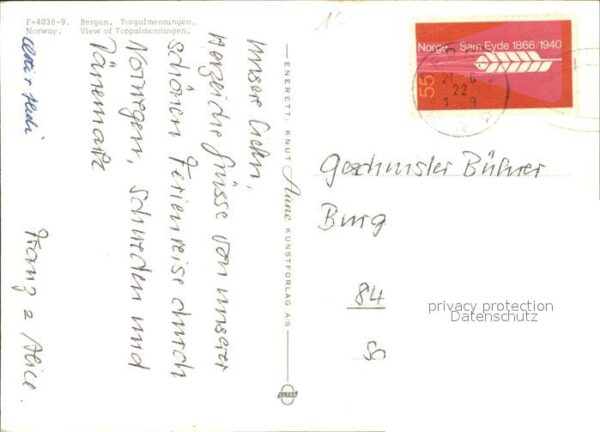 F-4038-9. Bergen. Torgalmenningen.
Norway. View of Torgalmenningen.
Unsere Lieben,
Herzliche Grüsse von unserer
schönen Ferienreise durch
Norwegen, Schweden und
Dänemark
Franz & Alice.
ENERETT: KNUT Aune KUNSTFORLAG A.S
ULTRA
Norge Sam Eyde 1866/1940
55
21 6
22
1 9
Geschwister Bührer
Burg
84
privacy protection
Datenschutz